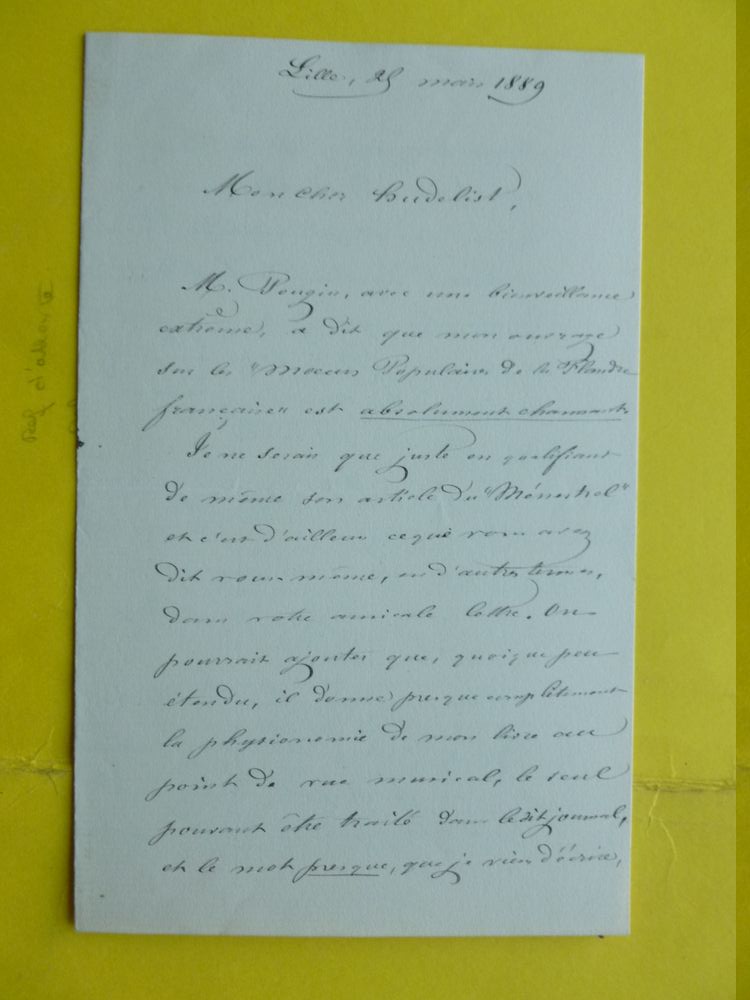 Lille, 25 mars 1889
Mon cher hudelist,
M. Pougin, avec une bienveillance
extrême, a dit que mon ouvrage
sur les "Moeurs Populaires de la Flandre
française" est absolument charmant.
Je ne serais que juste en qualifiant
de même son article du "Ménestrel"
et c'est d'ailleurs ce que vous avez
dit vous-même, en d'autres termes,
dans votre amicale lettre. On
pourrait ajouter que, quoique peu
étendu, il donne presque complètement
la physionomie de mon livre au
point de vue musical, le seul
pouvant être traité dans le dit journal,
et le mot presque, que je viens d'écrire,